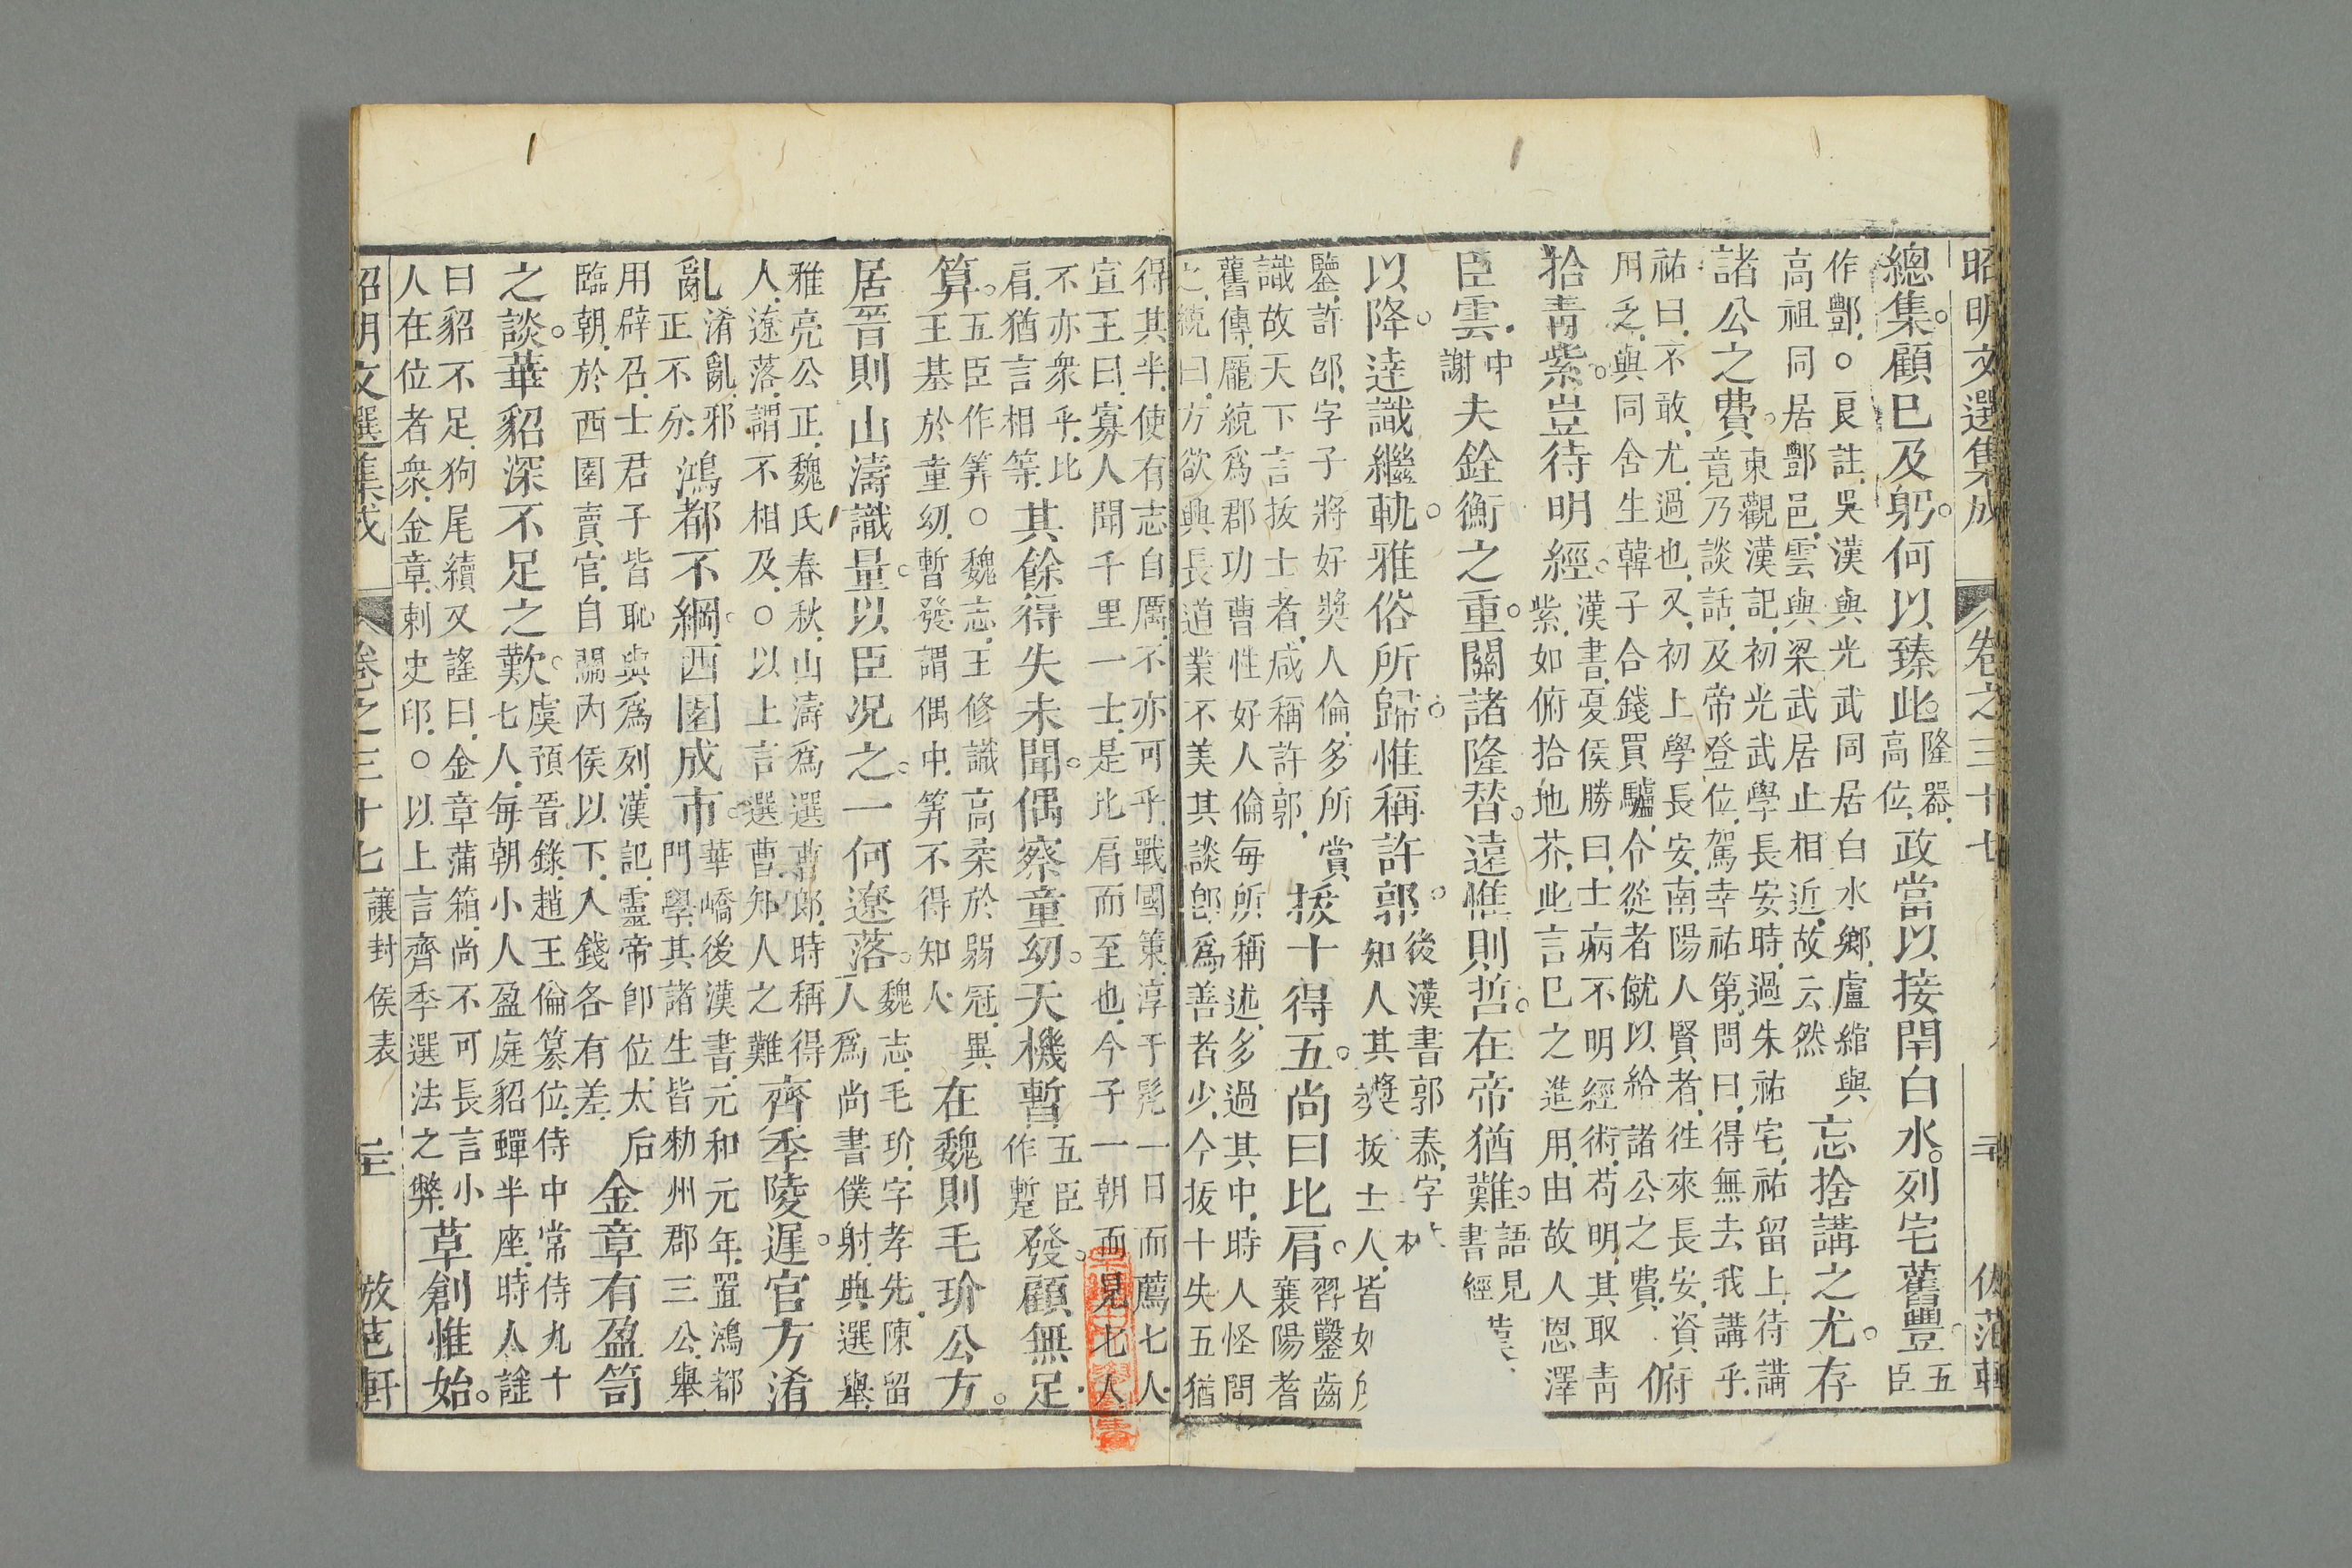 昭明文選集成 卷之三十七
總集。顧已及躬。何以臻此。隆器。高位。政當以接閈白水。列宅舊豐。五臣
作酆。○良註。吳漢與光武同居白水鄉。盧綰與
高祖同居酆邑。雲與梁武居止相近。故云然 忘捨講之尤。存
諸公之費。東觀漢記。初光武學長安時。過朱祐宅。祐留上。待講
竟乃談話。及帝登位。駕幸祐第。問曰。得無去我講乎。
祐曰。不敢。尤。過也。又。初上學長安。南陽人賢者。往來長安。資
用乏。與同舍生韓子合錢買驢。令從者僦以給諸公之費。 俯
拾青紫。豈待明經。漢書。夏侯勝曰。士病不明經術。苟明。其取青
紫。如俯拾地芥。此言已之進用。由故人恩澤
臣雲。中謝夫銓衡之重。關諸隆替。遠惟則哲。在帝猶難。語見書經
以降。達識繼軌。雅俗所歸。惟稱許郭。後漢書郭泰。字
知人其獎拔士人。皆如
鑒。許邵。字子將好獎人倫。多所賞
識故天下言拔士者。咸稱許郭。 拔十得五。尚曰比肩。習鑿齒襄陽耆
舊傳。龎統爲郡功曹性好人倫每所稱述。多過其中。時人怪問
之。統曰。方欲興長道業不美其談卽爲善者少。今拔十失五猶
得其半。使有志自厲。不亦可乎。戰國策。淳于髡一日而薦七人。
宣王曰。寡人聞千里一士。是比肩而至也。今子一朝而見七人
不亦衆乎。比
肩。猶言相等。其餘得失未聞。偶察童幼。天機暫五臣作蹔發。顧無足
算。五臣作筭○魏志。王修識高柔於弱冠。異
王基於童幼。暫發。謂偶中。筭不得知人 在魏則毛玠公方。
居晉則山濤識量。以臣況之。一何遼落。魏志。毛玠。字孝先。陳留
人爲尚書僕射。典選舉。
雅亮公正。魏氏春秋。山濤爲選曹郎。時稱得
人。遼落。謂不相及。○以上言選曹知人之難 齊季陵遲。官方淆
亂。淆亂。邪正不分。鴻都不綱。西園成市。華嶠後漢書。元和元年。置鴻都
門學。其諸生皆勑州郡三公。舉
用辟召。士君子皆恥與爲列。漢記。靈帝卽位。太后
臨朝。於西園賣官。自關內侯以下。入錢各有差。 金章有盈笥
之談。華貂深不足之歎。虞預晉錄。趙王倫篡位。侍中常侍九十
七人。每朝小人盈庭貂蟬半座。時人謠
曰貂不足。狗尾續又謠曰。金章蒲箱。尚不可長言小
人在位者衆。金章。刺史印。○以上言齊季選法之弊。 草創惟始。
昭明文選集成 卷之三十七 讓封侯表 三 放范軒